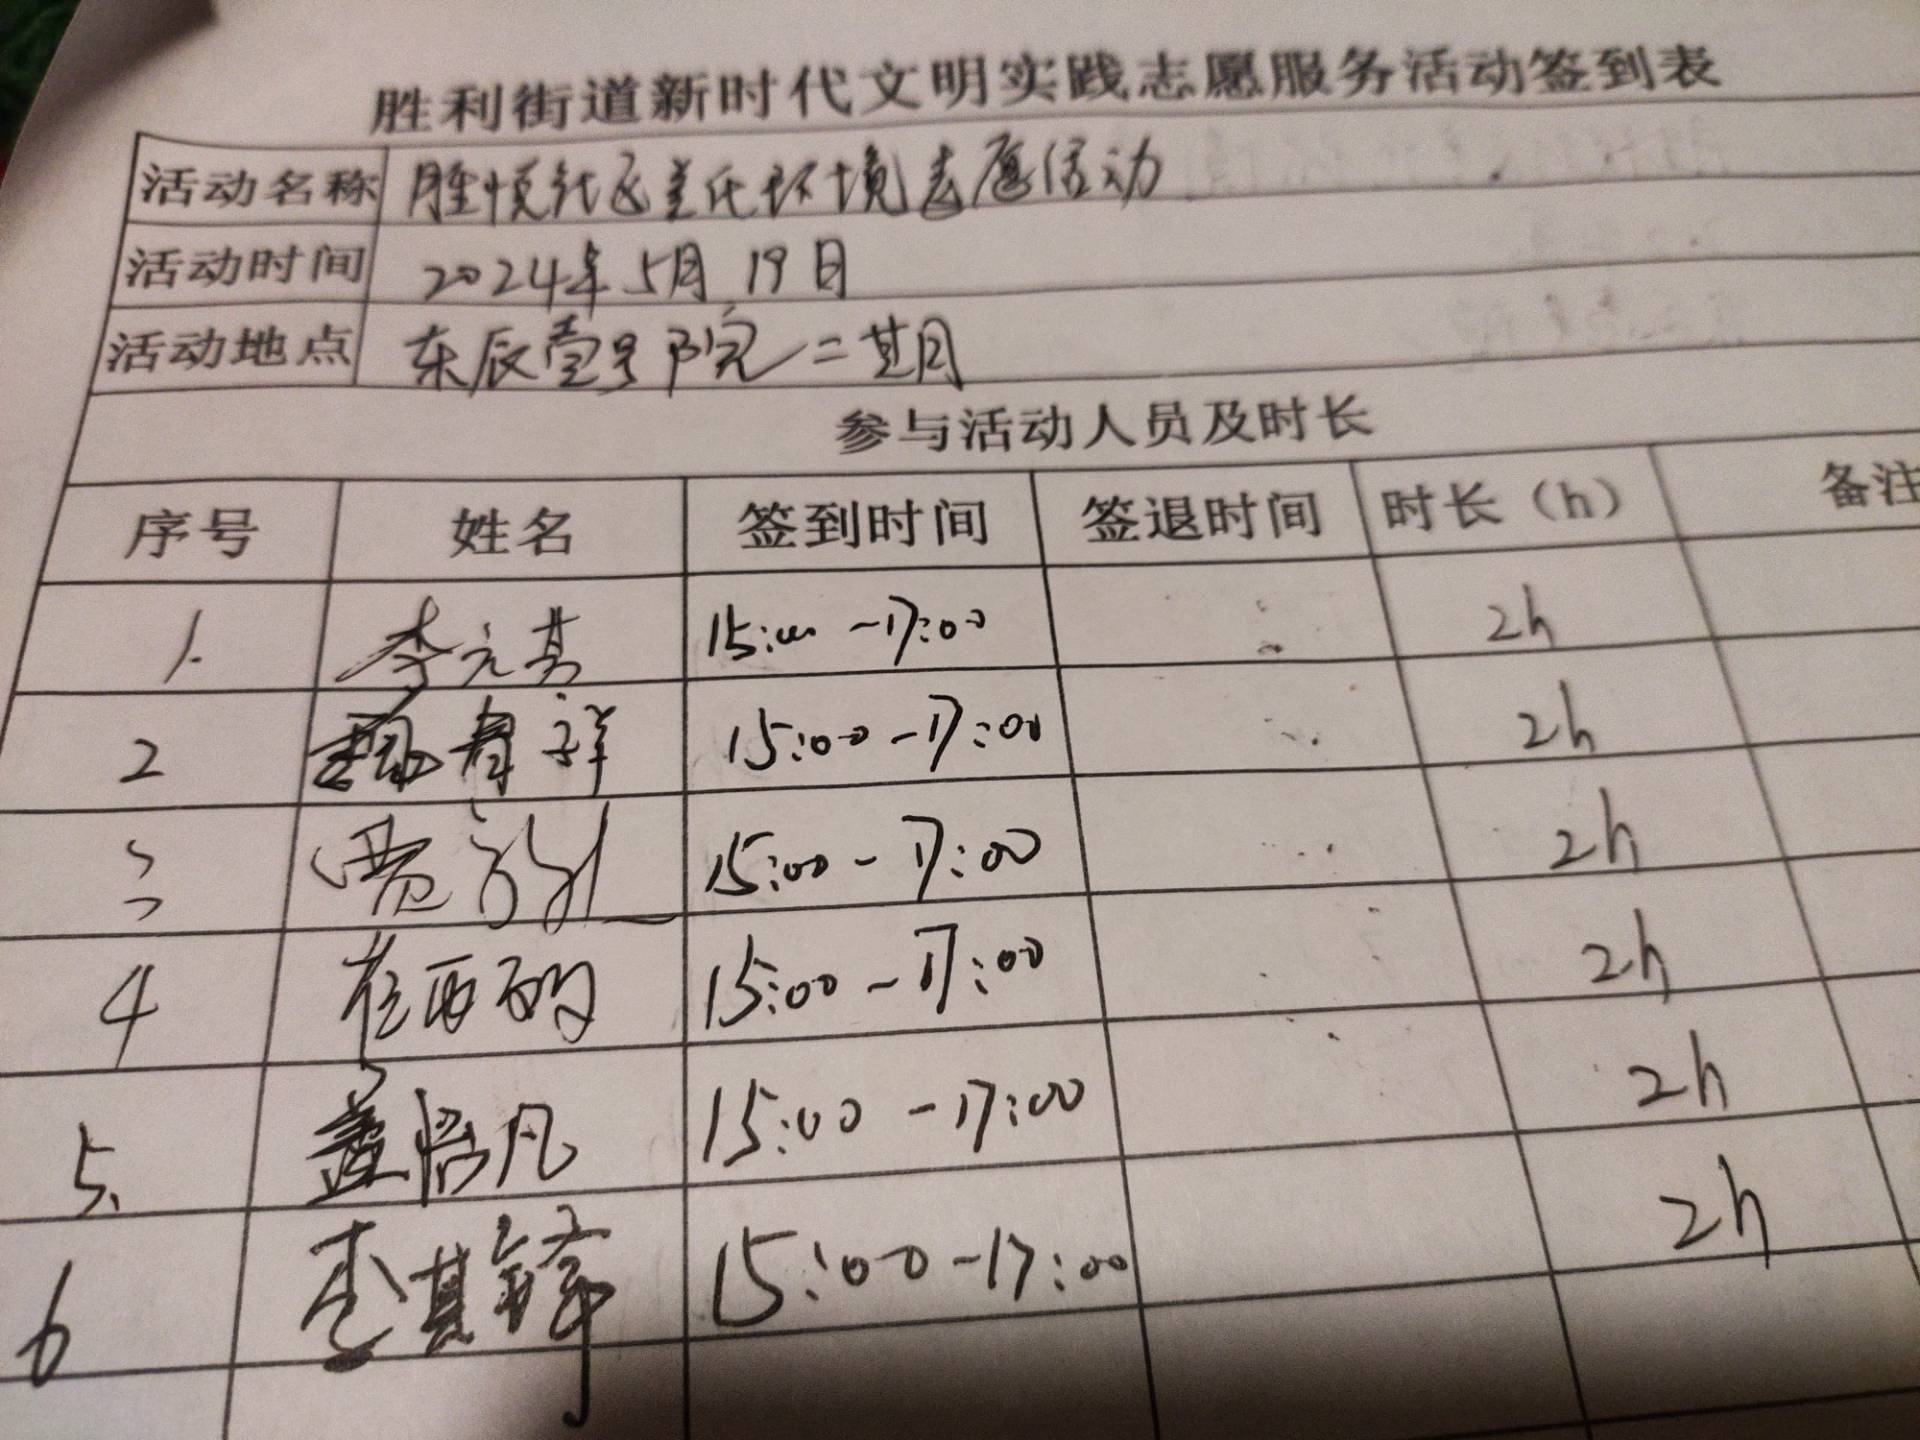 胜利街道新时代文明实践志愿服务活动签到表
活动名称 胜悦社区美化环境志愿活动
活动时间 2024年5月19日
活动地点 东辰壹号院二期
参与活动人员及时长
序号 姓名 签到时间 签退时间 时长（h） 备注
1. 李元其 15:00-17:00 2h
2 春祥 15:00-17:00 2h
3 贾 15:00-17:00 2h
4 崔雨 15:00-17:00 2h
5. 怡凡 15:00-17:00 2h
6 李其锋 15:00-17:00 2h